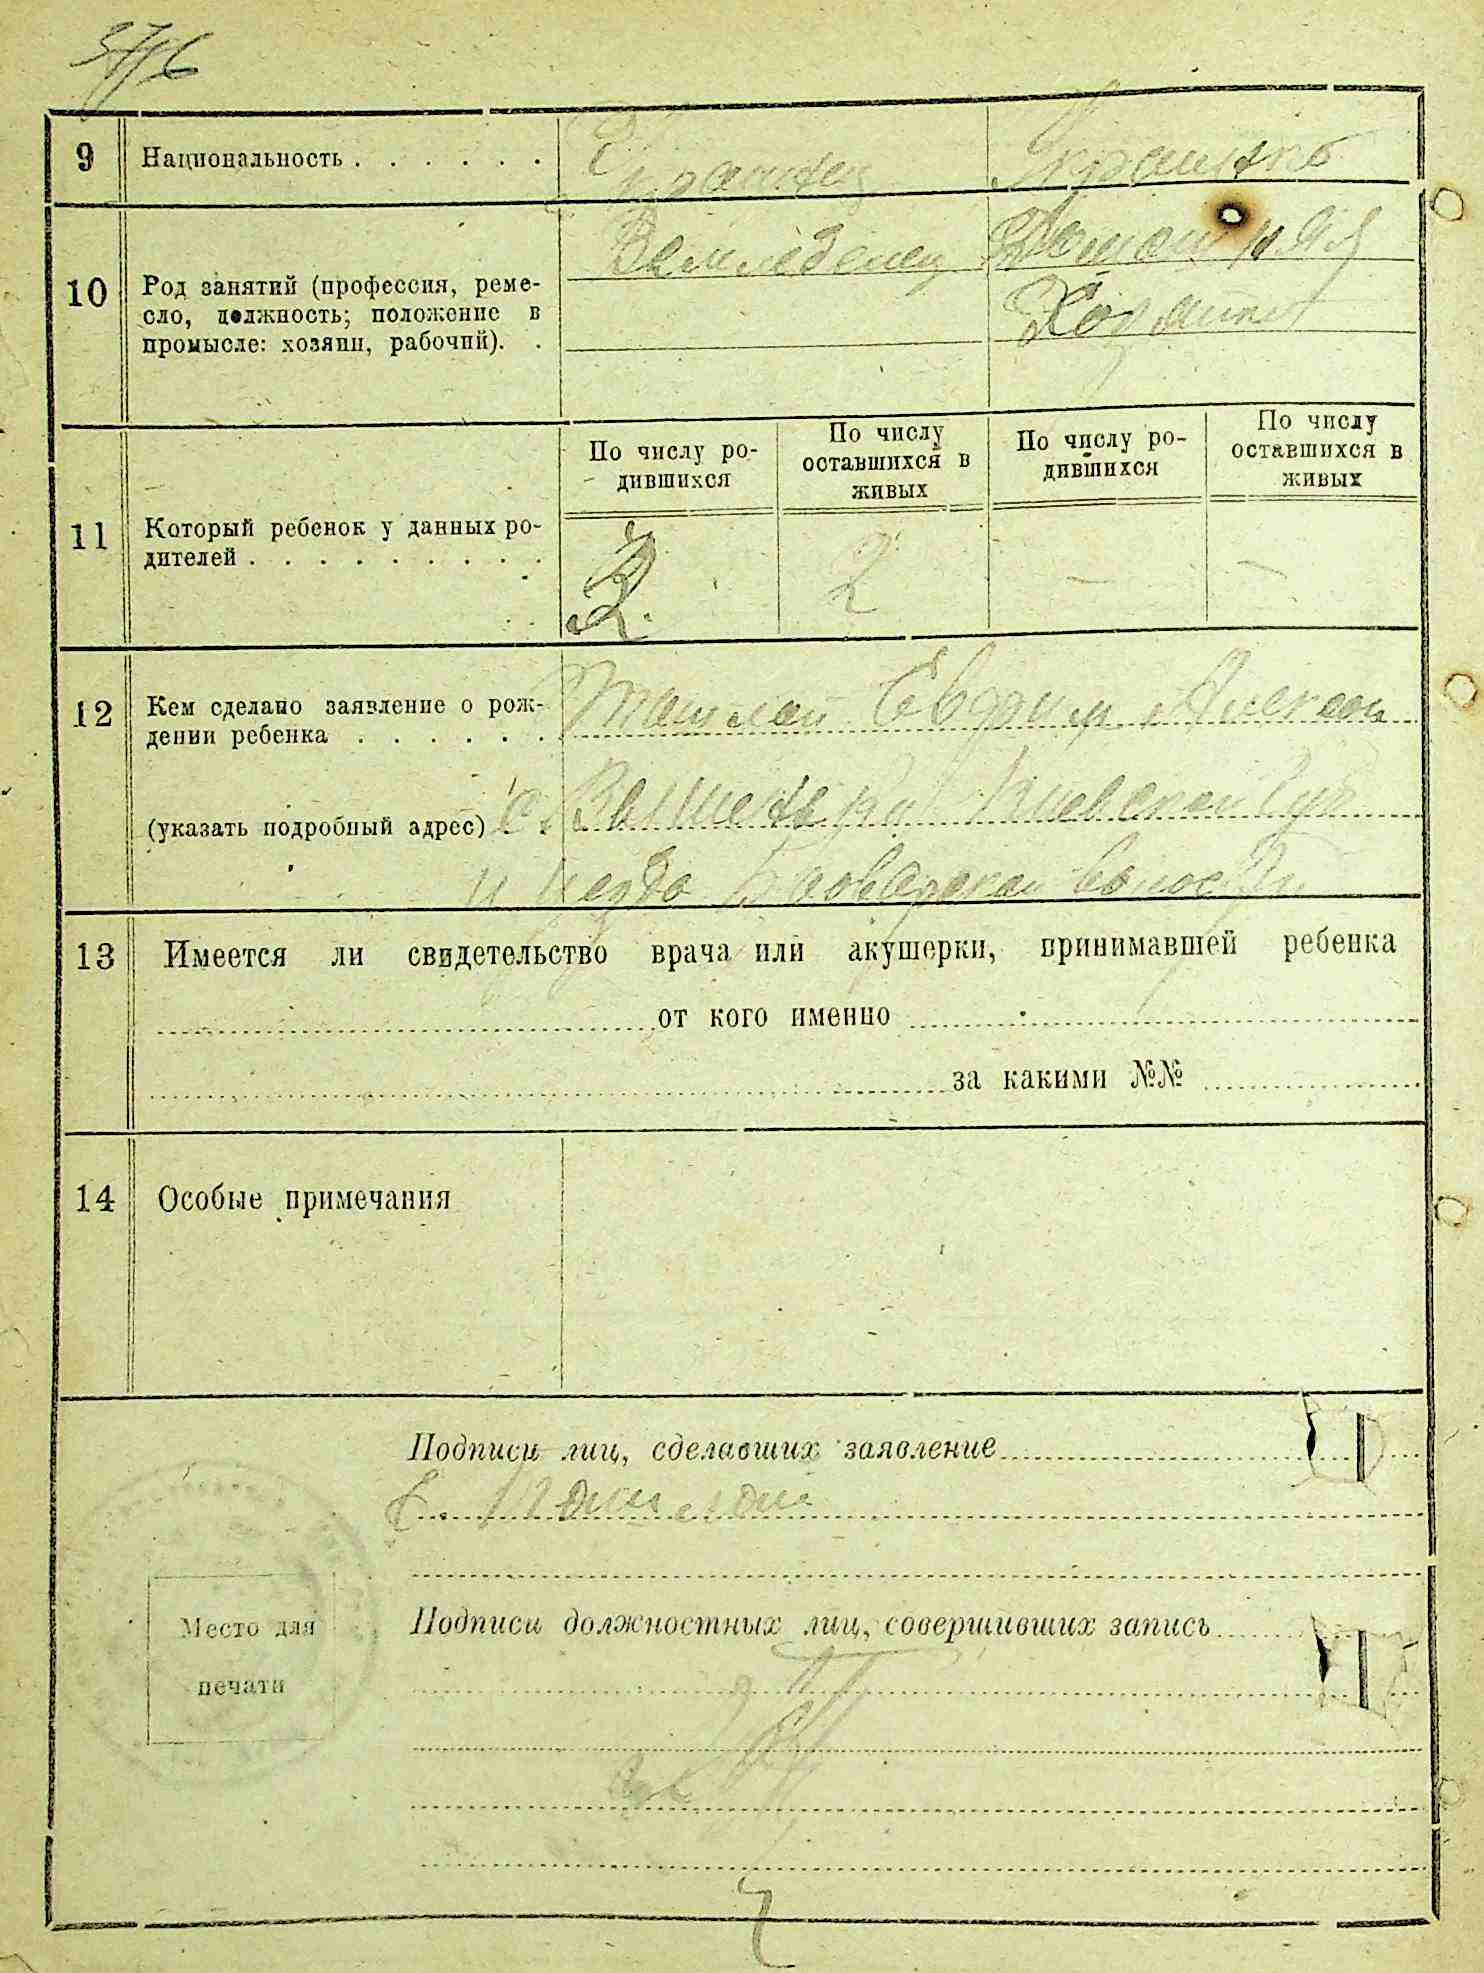 9 Национальность . . . . . . Украинец Украинка
10 Род занятий (профессия, реме-
сло, должность; положение в
промысле: хозяин, рабочий). . Земледелец Домашняя
Хозяйка
По числу ро-
дившихся
По числу
оставшихся в
живых
По числу ро-
дившихся
По числу
оставшихся в
живых
11 Который ребенок у данных ро-
дителей . . . . . . . . . 2. 2 — —
12 Кем сделано заявление о рож-
дении ребенка . . . . . . Евфим
(указать подробный адрес) . . с. Вышеньки Киевской Губ
и Уезда волости
13 Имеется ли свидетельство врача или акушерки, принимавшей ребенка
от кого именно
за какими №№
14 Особые примечания
Подписи лиц, сделавших заявление
Е.
Место для
печати
Подписи должностных лиц, совершивших запись